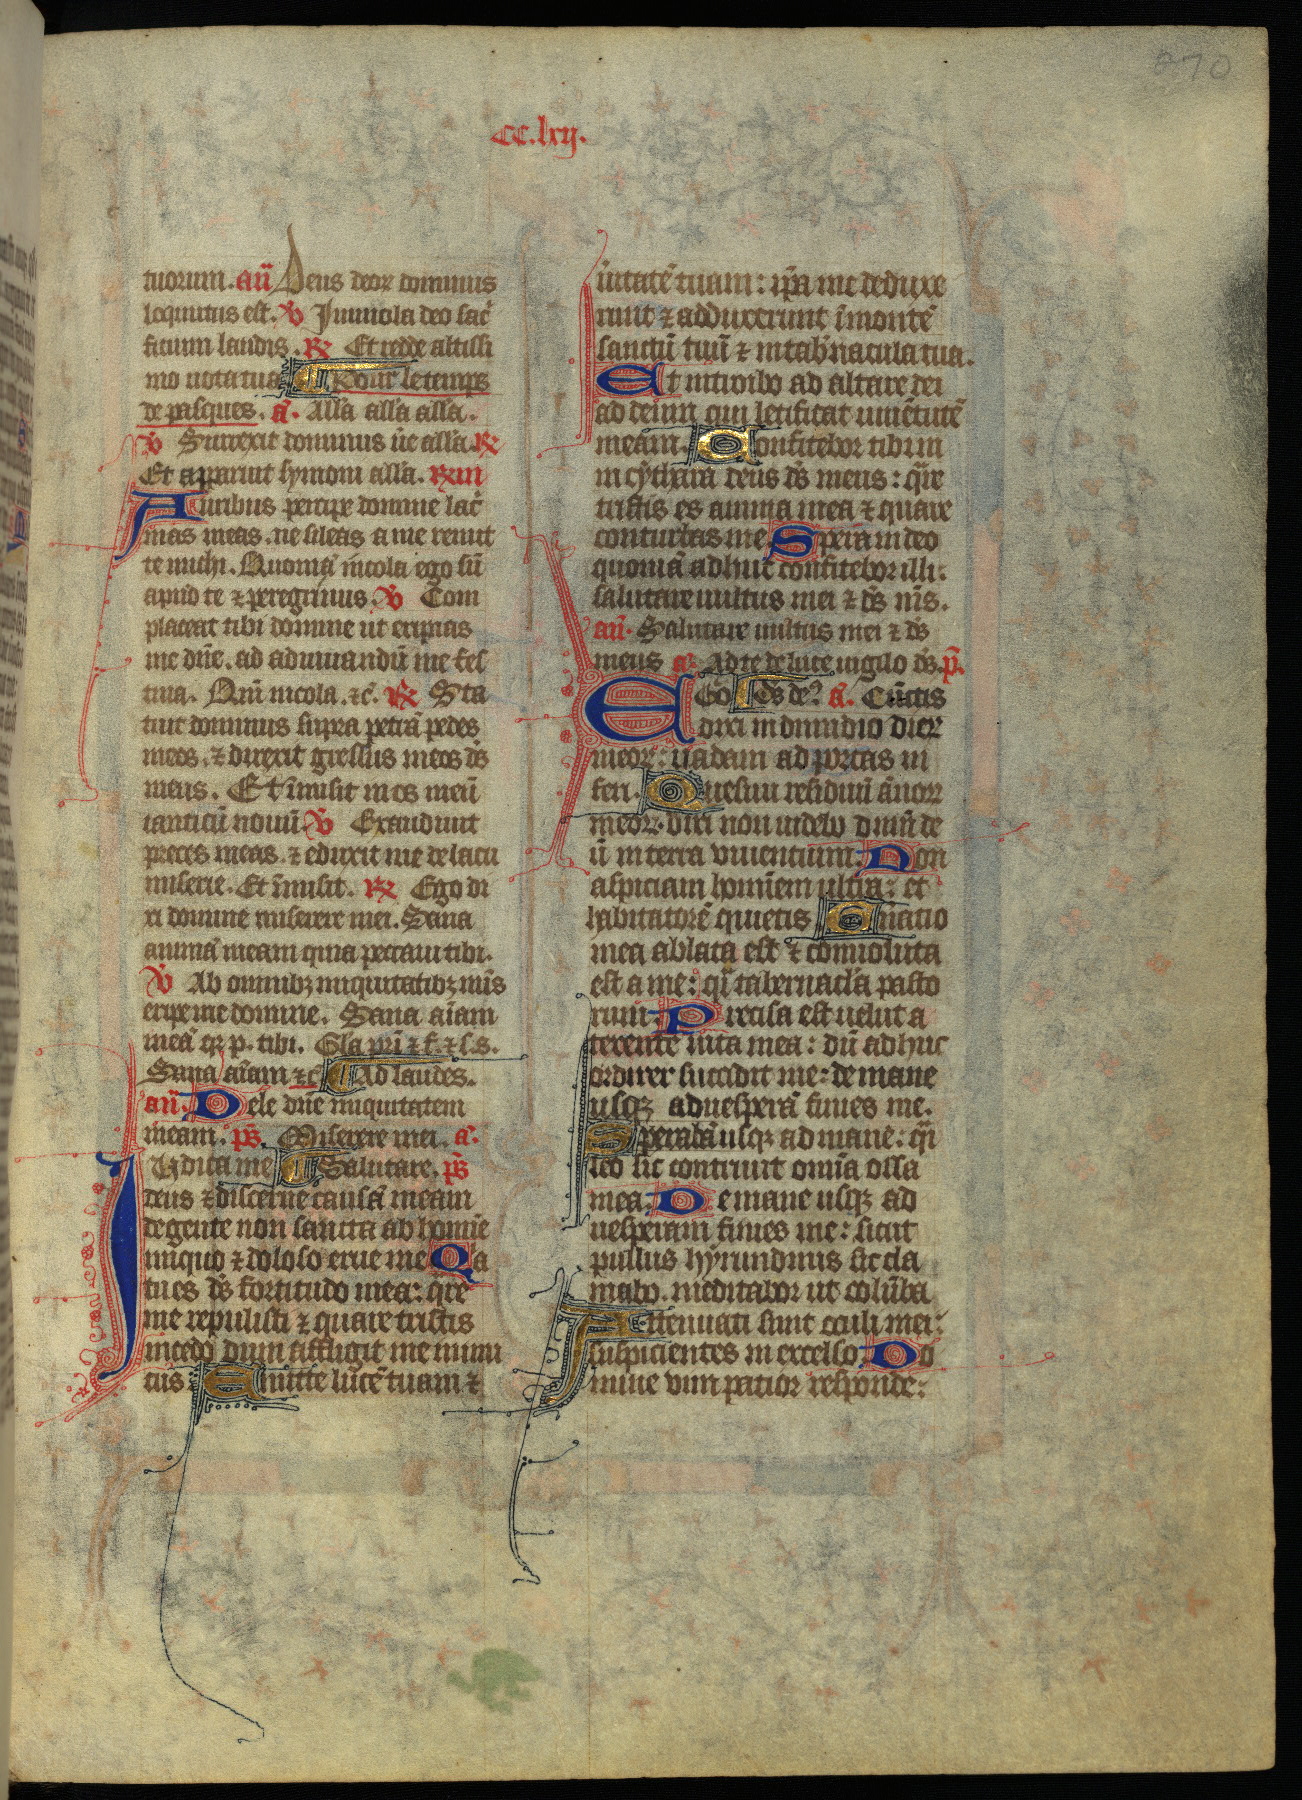 270
CC.lxij.
tuorum. añ Deus deor dominus
loquutus est. V Immola deo sac̃
ficium laudis. R Et redde altissi
mo uota tua Pour le temps
de pasques. a. All'a all'a all'a.
V Surrexit dominus ūe all'a. R
Et aparuit symoni all'a.
Auribus percipe domine lac̃
mas meas. ne sileas a me remit
te michi. Quoniã incola ego sũ
apud te ⁊ peregrinus. V Com
placeat tibi domine ut eripias
me dñe. ad adiuuandũ me res
tua. Qm̃ incola. ⁊c̃. R Sta
tuit dominus supra petrã pedes
meos. ⁊ direxit gressus meos d̃s
meus. Et ĩmisit in os meũ
canticũ nouũ V Exaudiuit
preces meas. ⁊ eduxit me de lacu
miserie. Et ĩmisit. R Ego di
xi domine miserere mei. Sana
animã meam quia peccaui tibi.
V Ab omnibꝫ iniquitatibꝫ mĩs
eripe me domine. Sana aĩam
meã qꝛ p. tibi. Gl'a pr̃i ⁊ f. ⁊ s. s.
Sana aĩam ⁊c̃ Ad laudes.
añ. Dele dñe iniquitatem
meam. ps̃. Miserere mei. a.
Iudica me Salutare. ps̃
deus ⁊ discerne causã meam
de gente non sancta ab homĩe
iniquo ⁊ doloso erue me Q̃a
tu es d̃s fortitudo mea: qr̃e
me repulisti ⁊ quare tristis
incedo dum affligit me inimi
cus Emitte lucẽ tuam ⁊
ũitatẽ tuam: ip̃a me deduxe
runt ⁊ adduxerunt ĩ montẽ
sanctũ tuũ ⁊ in tab'nacula tua.
Et introibo ad altare dei
ad deum qui letificat iuuẽtutẽ
meam. Confitebor tibi in
in cythara deus d̃s meus: qr̃e
tristis es anima mea ⁊ quare
conturbas me Spera in deo
quoniã adhuc confitebor illi:
salutare uultus mei ⁊ d̃s m̃s.
añ. Salutare uultus mei ⁊ d̃s
meus a. Ad te de luce uigilo d̃s. p̃.
Ego d̃s de² a. Cũctis
dixi in dimidio dier
meor: uadam ad portas in
feri. Quesiui residuũ ãnorꝛ
meorꝛ. dixi non uidebo dmũ de
ũ in terra viuentium: Non
aspiciam hominem ultra: et
habitatorẽ quietis Gñatio
mea ablata est ⁊ conuoluta
est a me: q̃i tabernacl'a pasto
rum. Precisa est uelut a
texente uita mea: dũ adhuc
ordirer succidit me: de mane
usqꝫ ad uesperã finies me.
Sperabã usqꝫ ad mane: q̃i
leo sic contriuit omĩa ossa
mea. De mane usqꝫ ad
uesperam finies me: sicut
pullus hyrundinis sic cla
mabo. meditabor ut colũba
Attenuati sunt oculi mei:
suspicientes in excelso. Do
mine vim patior responde: